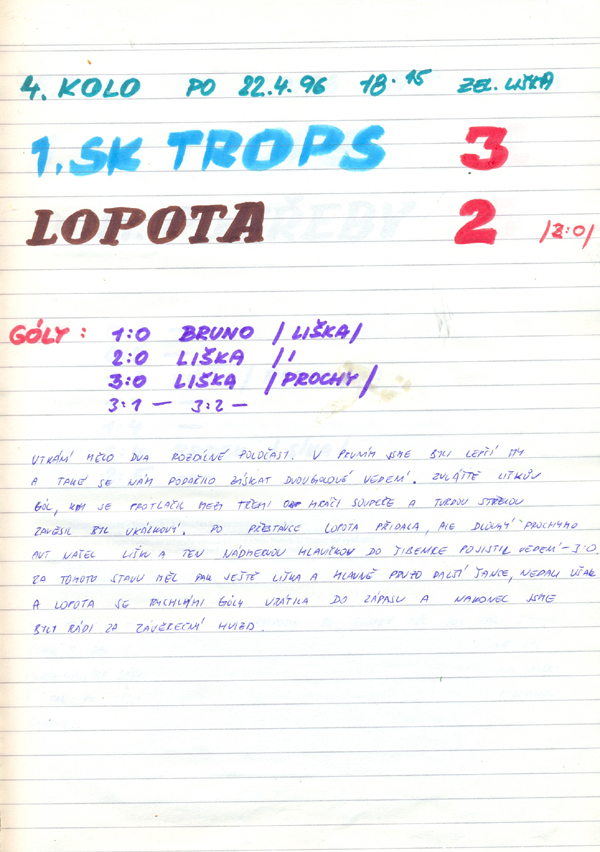 4. KOLO PO 22.4.96 18.15 ZEL. LIŠKA
1. SK TROPS 3
LOPOTA 2 /2:0/
GÓLY : 1:0 BRUNO /LIŠKA/
2:0 LIŠKA / /
3:0 LIŠKA /PROCHY/
3:1 — 3:2 —
UTKÁNÍ MĚLO DVA ROZDÍLNÉ POLOČASY. V PRVNÍM JSME BYLI LEPŠÍ MY
A TAKÉ SE NÁM PODAŘILO ZÍSKAT DVOUGÓLOVÉ VEDENÍ. ZVLÁŠTĚ LIŠKŮV
GÓL, KDY SE PROTLAČIL MEZI TŘEMI HRÁČI SOUPEŘE A TVRDOU STŘELOU
ZAVĚSIL BYL UKÁZKOVÝ. PO PŘESTÁVCE LOPOTA PŘIDALA, ALE DLOUHÝ PROCHYHO
AUT NAŠEL LIŠKU A TEN NÁDHERNOU HLAVIČKOU DO ŠIBENICE POJISTIL VEDENÍ – 3:0.
ZA TOHOTO STAVU MĚL PAK JEŠTĚ LIŠKA A HLAVNĚ DALŠÍ ŠANCE, NEDALI VŠAK
A LOPOTA SE RYCHLÝMI GÓLY VRÁTILA DO ZÁPASU A NAKONEC JSME
BYLI RÁDI ZA ZÁVĚREČNÝ HVIZD.